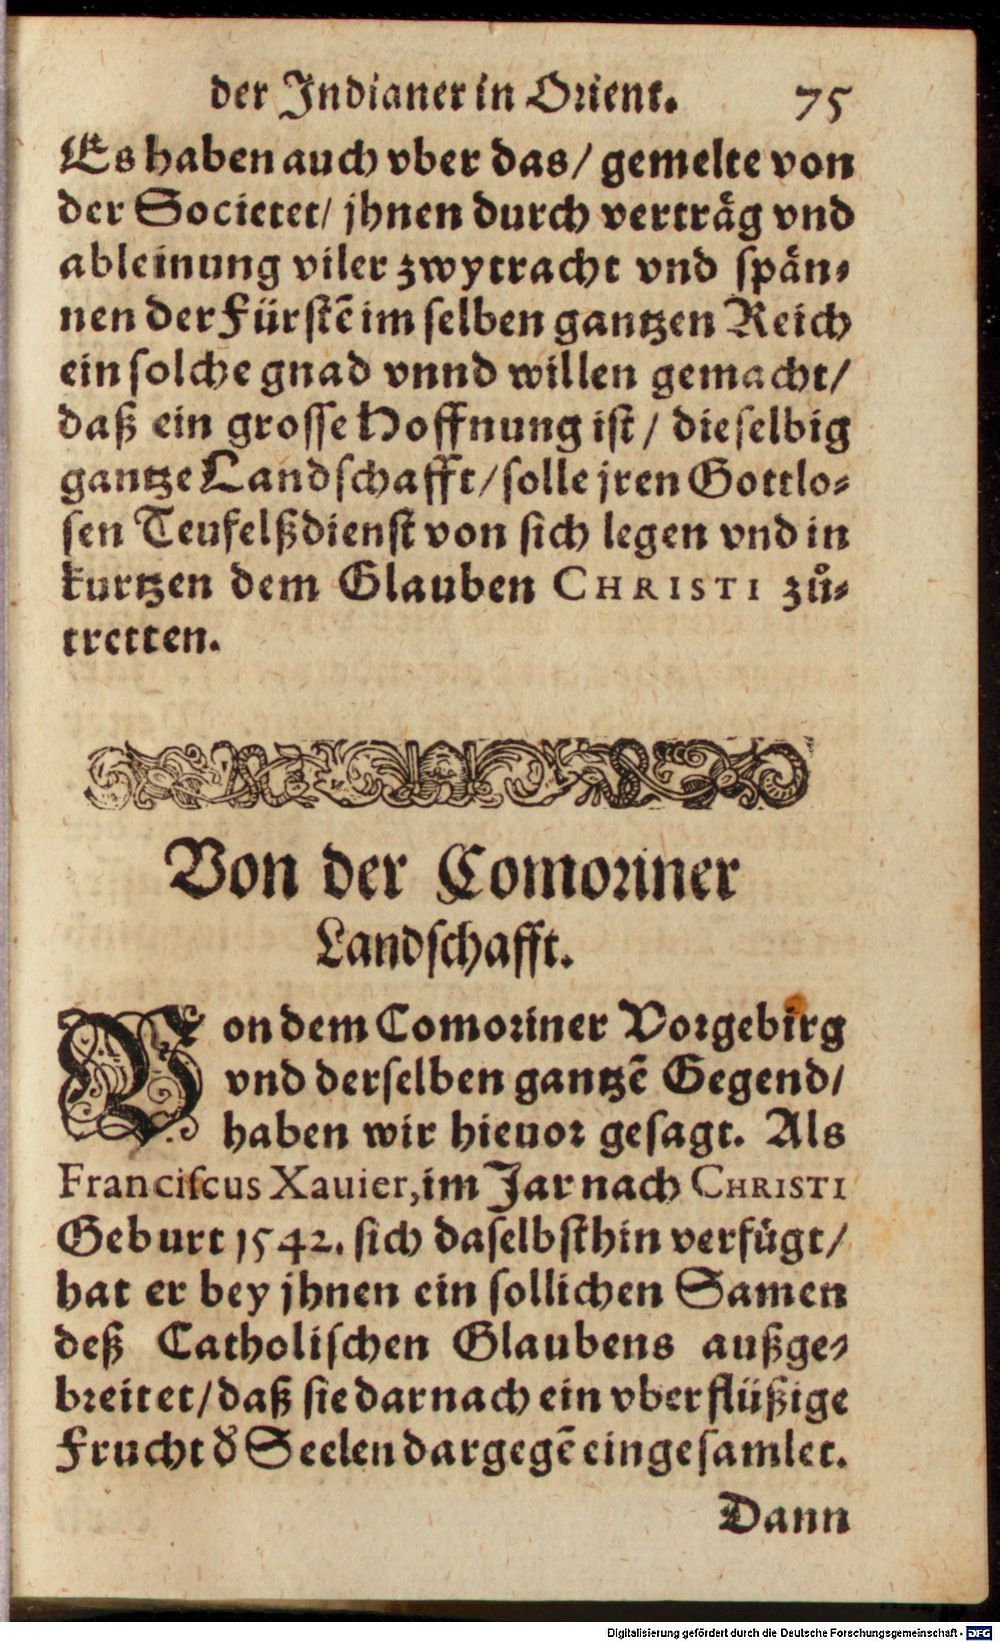 der Indianer in Orient. 75
Es haben auch vber das/ gemelte von
der Societet/ jhnen durch verträg vnd
ableinung viler zwytracht vnd spän⸗
nen der Fürstẽ im selben gantzen Reich
ein solche gnad vnnd willen gemacht/
daß ein grosse Hoffnung ist / dieselbig
gantze Landschafft/ solle jren Gottlo⸗
sen Teufelßdienst von sich legen vnd in
kurtzen dem Glauben CHRISTI zů⸗
tretten.
Von der Comoriner
Landschafft.
Von dem Comoriner Vorgebirg
vnd derselben gantzẽ Gegend/
haben wir hieuor gesagt. Als
Franciscus Xauier, im Jar nach CHRISTI
Geburt 1542. sich daselbsthin verfügt/
hat er bey jhnen ein sollichen Samen
deß Catholischen Glaubens außge⸗
breitet/ daß sie darnach ein vberflüßige
Frucht d̕ Seelen dargegẽ eingesamlet.
Dann
Digitalisierung gefördert durch die Deutsche Forschungsgemeinschaft - DFG